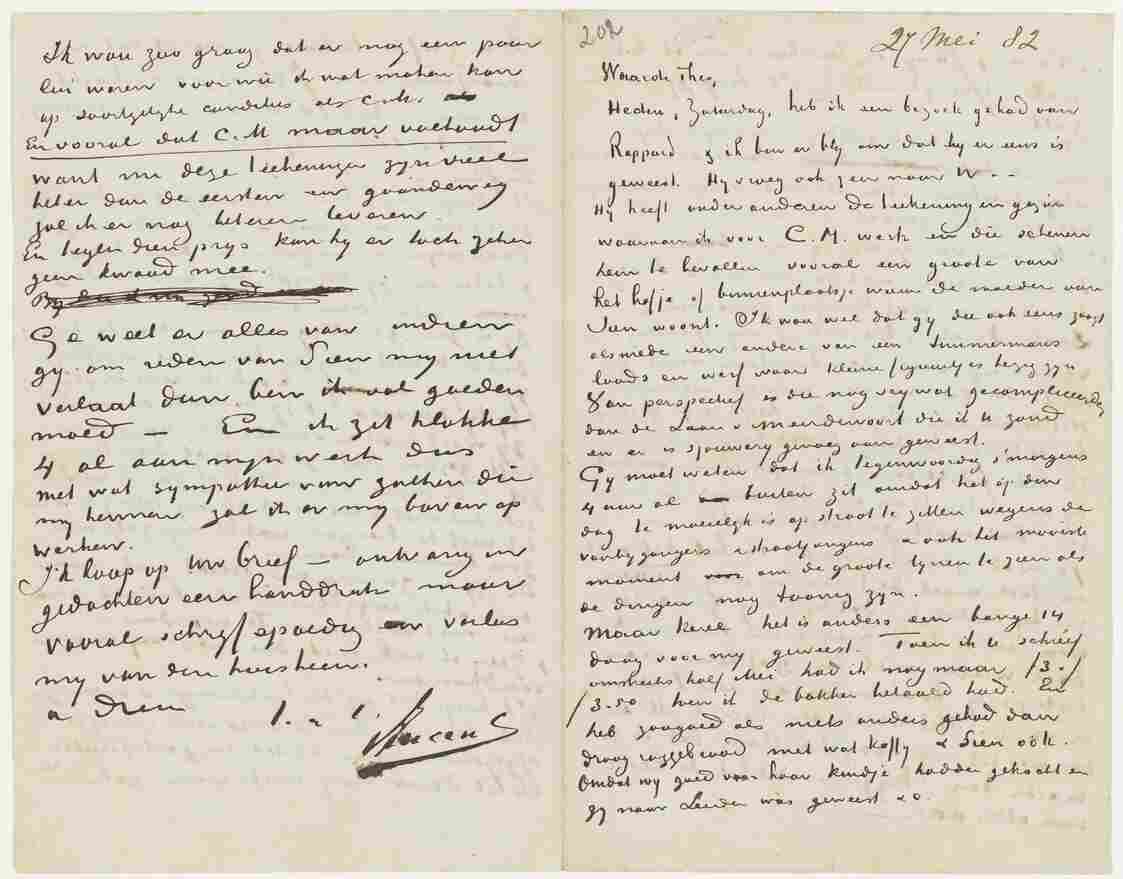 Ik wou zoo graag dat er nog een paar
lui waren voor wie ik wat maken kon
op soortgelyke condities als C.M.
En vooral dat C.M maar volhoudt
want nu deze teekeningen zyn veel
beter dan de eersten en gaandeweg
zal ik er nog beteren leveren.
En tegen dien prys kan hy er toch zeker
geen kwaad mee.
Ge weet er alles van indien
gy om reden van Sien my niet
verlaat dan ben ik vol goeden
moed — En ik zit klokke
4 al aan mijn werk dus
met wat sympathie van zulken die
my kennen zal ik er my boven op
werken.
Ik hoop op uw brief — ontvang in
gedachten een handdruk maar
vooral schryf spoedig en verlos
my van den huisheer.
a Dieu
t. à t.
Vincent
202
27 Mei 82
Waarde Theo,
Heden, Zaturdag, heb ik een bezoek gehad van
Rappard & ik ben er bly om dat hy er eens is
geweest. Hy vroeg ook zeer naar U. - -
Hy heeft onder anderen de teekeningen gezien
waaraan ik voor C.M. werk en die schenen
hem te bevallen vooral een groote van
het hofje of binnenplaatsje waar de moeder van
Sien woont. Ik wou wel dat gy die ook eens zaagt
alsmede een andere van een Timmermans
loods en werf waar kleine figuurtjes bezig zyn
Van perspectief is die nog vry wat gecompliceerder
dan de Laan v Meerdervoort die ik u zond
en er is gpouwery genoeg aan geweest.
Gy moet weten dat ik tegenwoordig s'morgens
4 uur al buiten zit omdat het op den
dag te moeielyk is op straat te zitten wegens de
voorbygangers & straatjongens & ook het mooiste
moment om de groote lynen te zien als
de dingen nog toonig zyn.
Maar kerel het is anders een bange 14
daag voor my geweest. Toen ik u schreef
omstreeks half Mei had ik nog maar /3.-/
/3.50 toen ik de bakker betaald had. En
heb zoogoed als niets anders gehad dan
droog roggebrood met wat koffy & Sien ook.
Omdat wy goed voor haar kindje hadden gekocht en
zy naar Leiden was geweest &c.